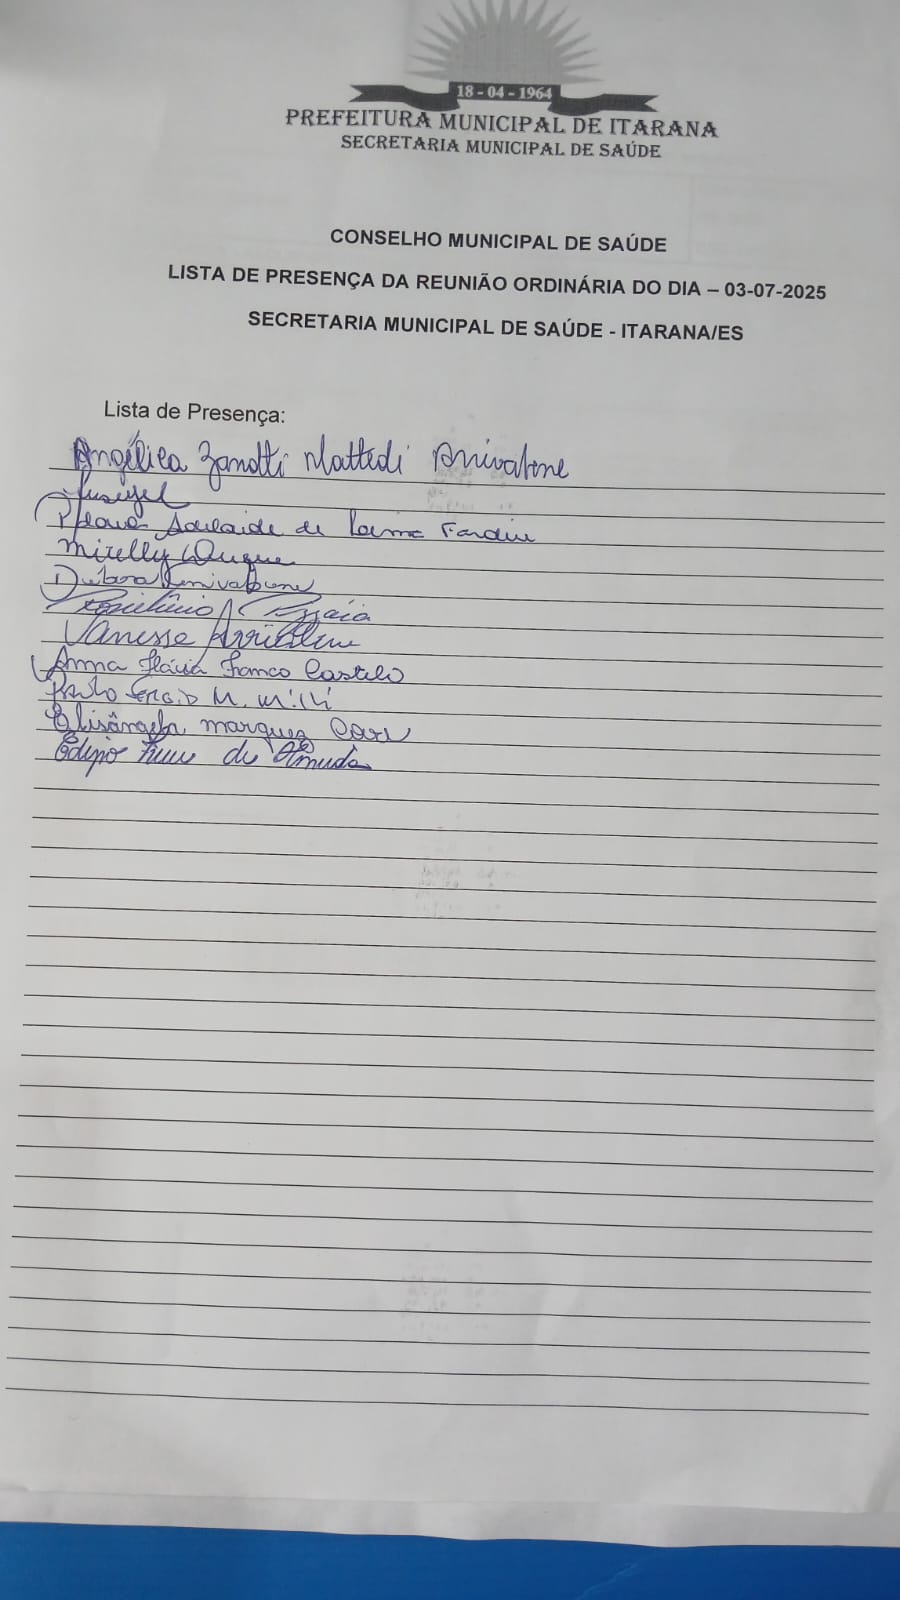 18 - 04 - 1964
PREFEITURA MUNICIPAL DE ITARANA
SECRETARIA MUNICIPAL DE SAÚDE
CONSELHO MUNICIPAL DE SAÚDE
LISTA DE PRESENÇA DA REUNIÃO ORDINÁRIA DO DIA – 03-07-2025
SECRETARIA MUNICIPAL DE SAÚDE - ITARANA/ES
Lista de Presença:
Angélica Zanotti Mattedi Arrivabene
Adelaide de Fardin
Mirelly Duque
Débora Arrivabene
Vanessa Arrivabene
Anna Flávia Franco Castelo
Paulo Sergio M.
Elisângela marques
Edipo de Almeida